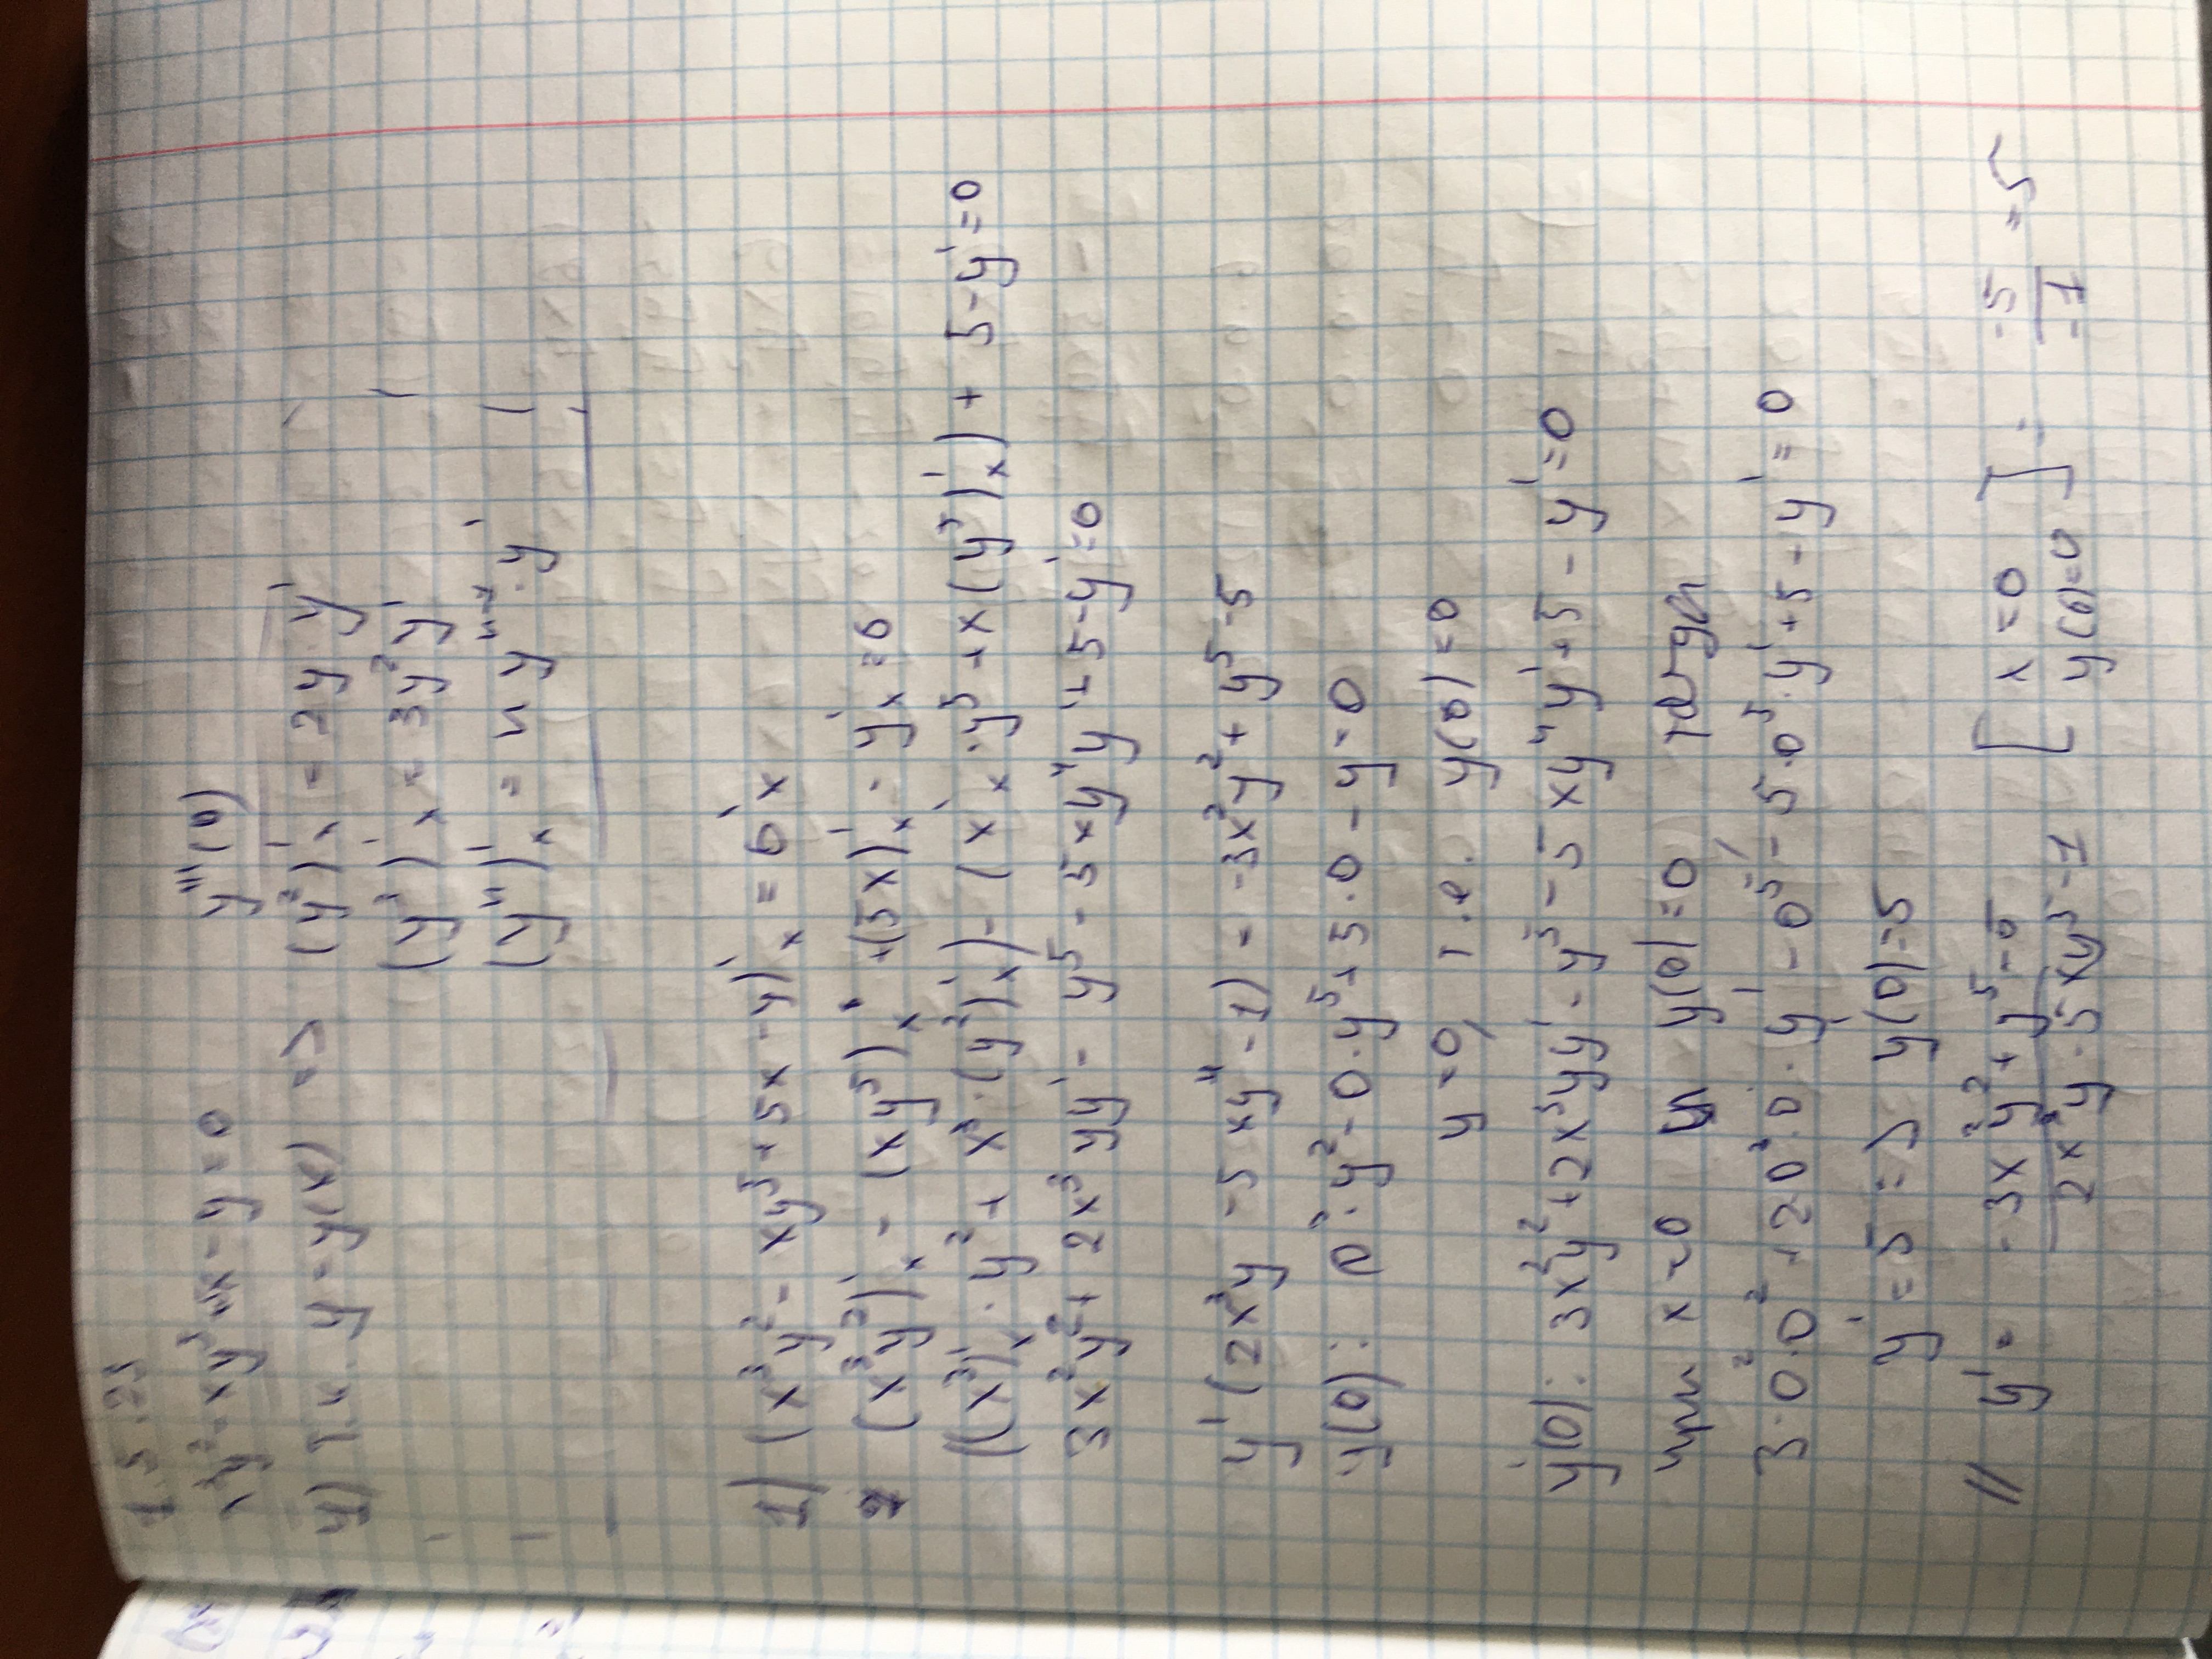 1.5.23
x³y² - xy⁵ + 5x - y = 0 y'''(0)
y) т.к. y = y(x) => (y²)'ₓ = 2y · y'
(y³)'ₓ = 3y² y'
(yⁿ)'ₓ = n yⁿ⁻¹ · y'
1) (x³y² - xy⁵ + 5x - y)'ₓ = 0'x
(x³y²)'ₓ - (xy⁵)ₓ' + (5x)'ₓ - y'ₓ = 0
((x³)'ₓ · y² + x³ · (y²)'ₓ) - (x'ₓ · y⁵ + x(y⁵)'ₓ) + 5 - y' = 0
3x²y² + 2x³yy' - y⁵ - 5xy⁴y' + 5 - y' = 0
y'(2x³y - 5xy⁴ - 1) = -3x²y² + y⁵ - 5
y(0): 0³ · y² - 0 · y⁵ + 5 · 0 - y = 0
y = 0, т.е. y(0) = 0
y'(0): 3x²y² + 2x³yy' - y⁵ - 5xy⁴y' + 5 - y' = 0
при x = 0 и y(0) = 0, тогда
3·0²·0² + 2·0³·0·y' - 0⁵ - 5·0⁵·y' + 5 - y' = 0
y' = 5 => y'(0) = 5
// y' = (-3x²y² + y⁵ - 5)/(2x³y - 5xy⁵ - 1) [x = 0 y(0) = 0] = -5/-1 = 5